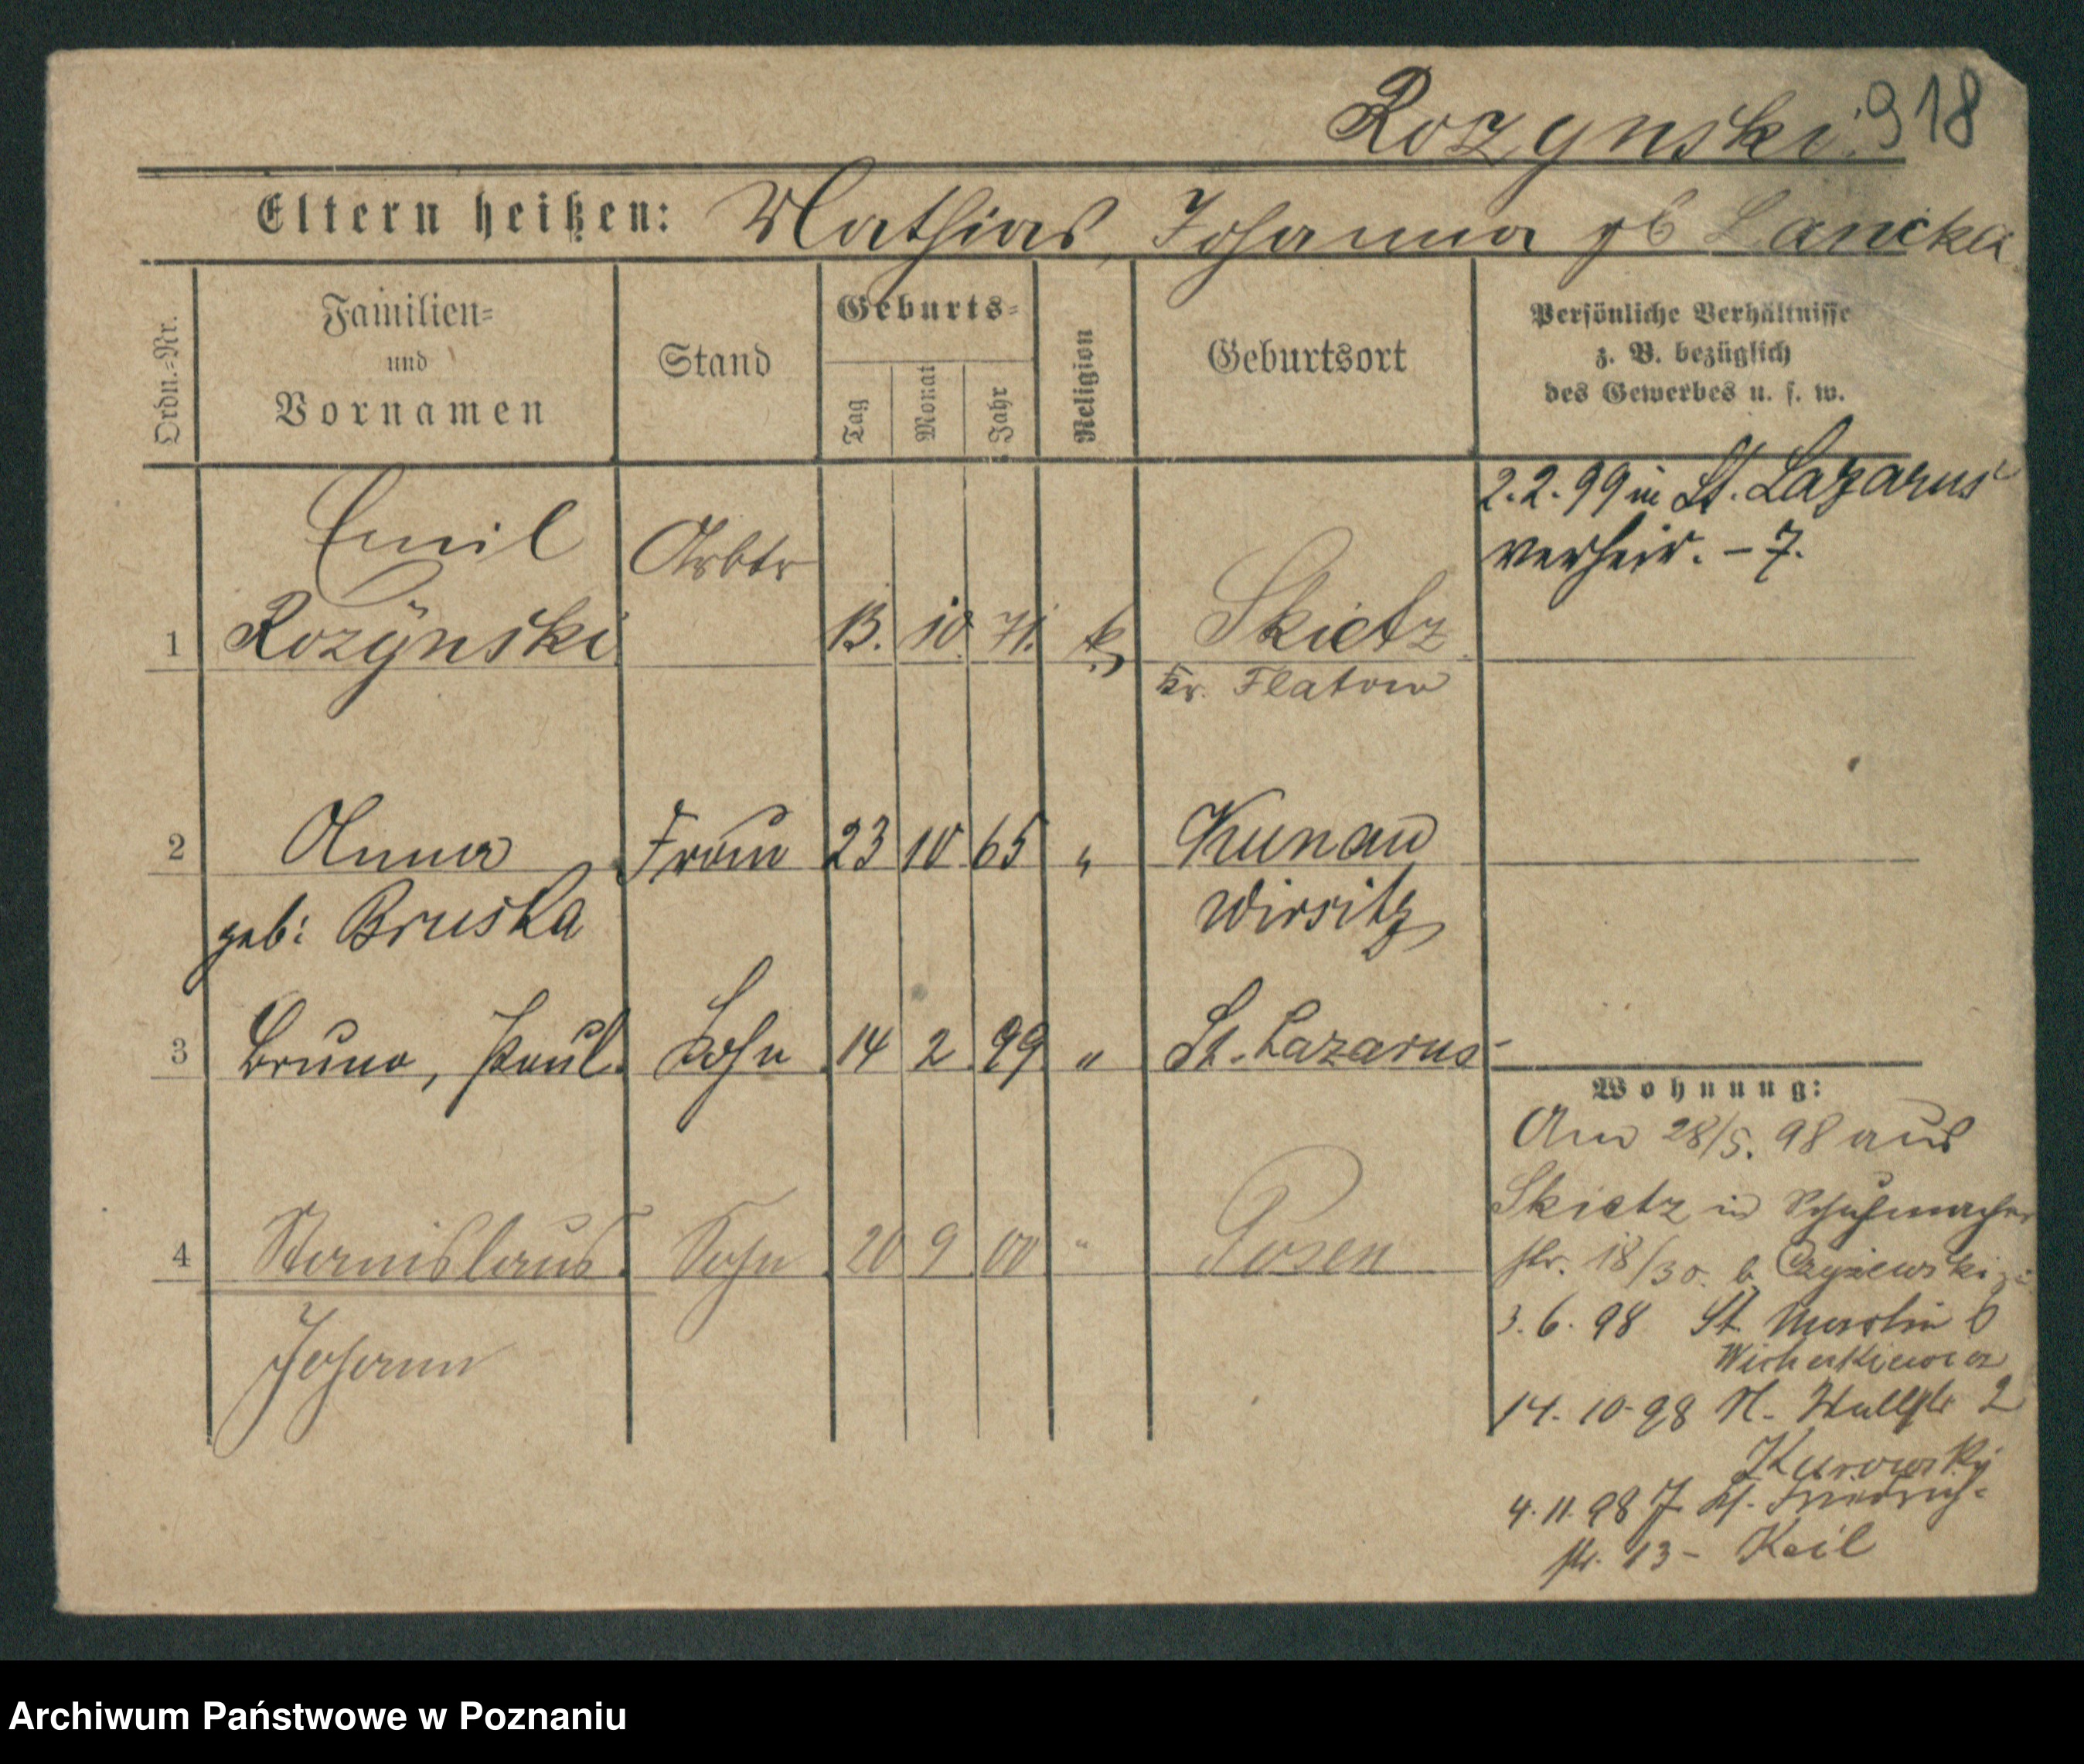 Rozynski 918
Eltern heißen: Mathias, Johanna gb Lancka
Ordn.-Nr.
Familien-
und
Vornamen
Stand
Geburts-
Tag
Monat
Jahr
Religion
Geburtsort
Persönliche Verhältnisse
z. B. bezüglich
des Gewerbes u. s. w.
2.2.99 in St. Lazarus
verheir. – 7.
Emil Arbtr
1 Rozÿnski 13. 10. 71. k. Skietz
Kr. Flatow
2 Anna Frau 23 10 65 " Kunau
geb: Bruska Wirsitz
3 Bruno, Paul. Sohn 14 2 99 " St. Lazarus
4 Stanislaus Sohn 20 9 00 " Posen
Johann
Wohnung:
Am 28/5. 98 aus
Skietz in Schuhmacher
str. 18/30. b. Czyzewski
3. 6. 98 St Martin 6
Wicherkiewicz
14. 10. 98 N. Wallstr 2
Kurowski
4. 11. 98 J. St. Friedrich-
str. 13 – Keil
Archiwum Państwowe w Poznaniu